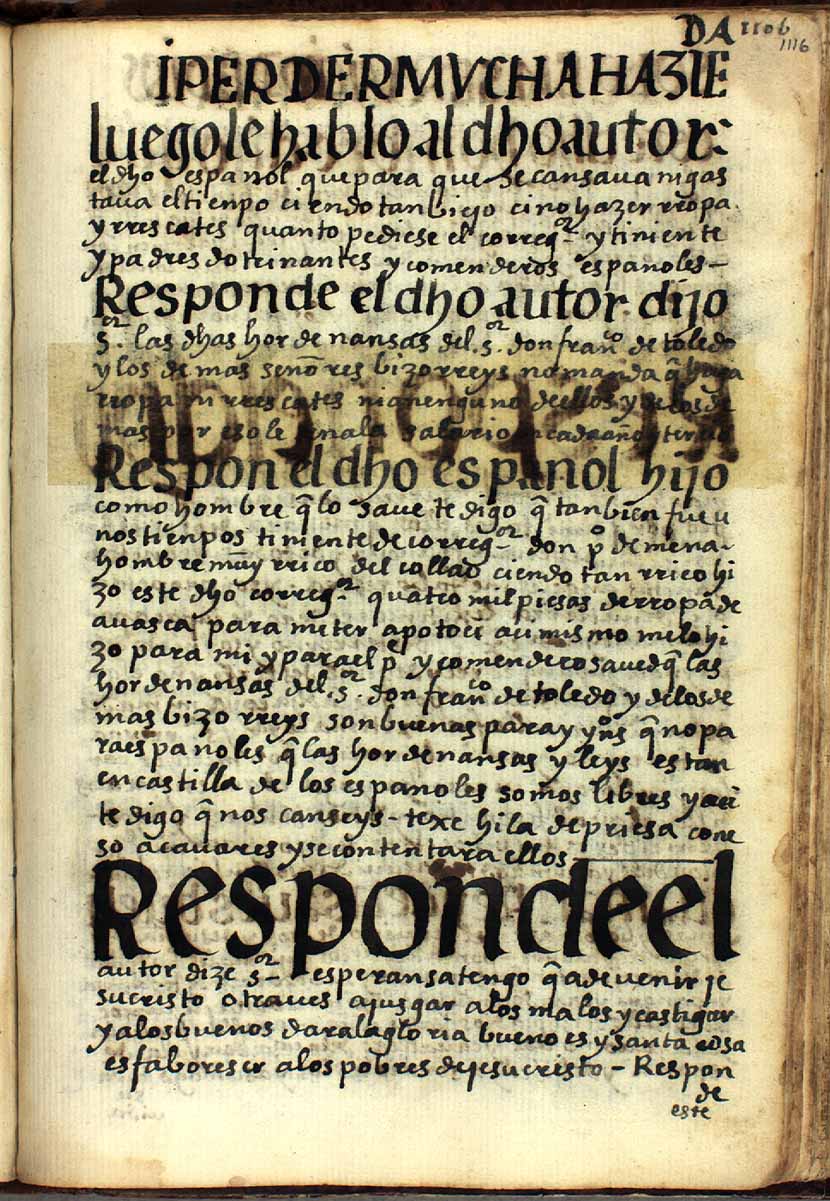 DA 1106
1116
I PERDER MVCHA HAZIE
luego le hablo al dho autor:
el dho español que para que se cansaua ni gas
taua el tienpo ciendo tan biejo cino hazer rropa
y rrescates quanto pediese el correg.or y tiniente
y padres dotrinantes y comenderos españoles –
Responde el dho autor dijo
s.or las dhas hordenansas del s.or don fran.co de toledo
y los demas señores bizorreys no manda q̃ haga
rropa ni rrescates nianenguno dellos y de los de
mas por eso le senala salario en cada año y tercio
Respon el dho español hijo
como hombre q̃ lo saue te digo q̃ tanbien fue u
nos tienpos tiniente de correg.or don p.o de mena
hombre muy rrico del collao ciendo tan rrico hi
zo este dho correg.or quatro mil piesas de rropa de
auasca para meter a potoci aci mismo me lo hi
zo para mi y para el p.e y comendero saued q̃ las
hordenansas del s.or don fran.co de toledo y de los de
mas bizorreys son buenas para yyn.os q̃ no pa
ra españoles q̃ las hordenansas y leys estan
en castilla de los españoles somos libres y aci
te digo q̃ nos canseys – texe hila de priesa con e
so acauares y se contentara ellos
Responde el
autor dize s.or – esperansa tengo q̃ a de uenir je
sucristo otra ues a jusgar a los malos y castigar
y a los buenos dara la gloria bueno es y santa cosa
es faboreser a los pobres de jesucristo – Respon
de
este